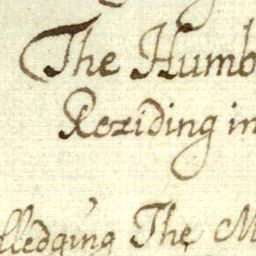 The Humb
Reziding in
lledging The M